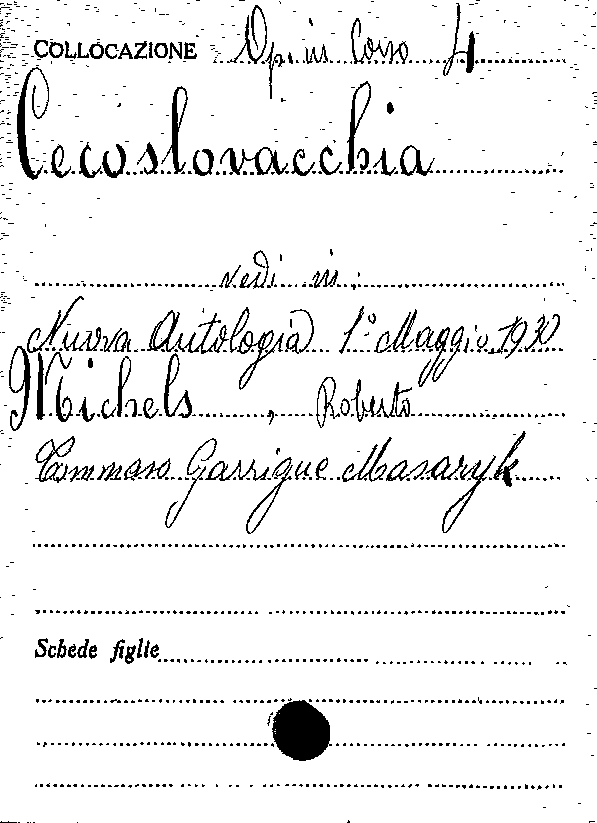 COLLOCAZIONE Op. in Corso 4
Cecoslovacchia
vedi in:
Nuova Antologia 1° Maggio 1930
Michels, Roberto
Tommaso Garrigue Masaryk
Schede figlie